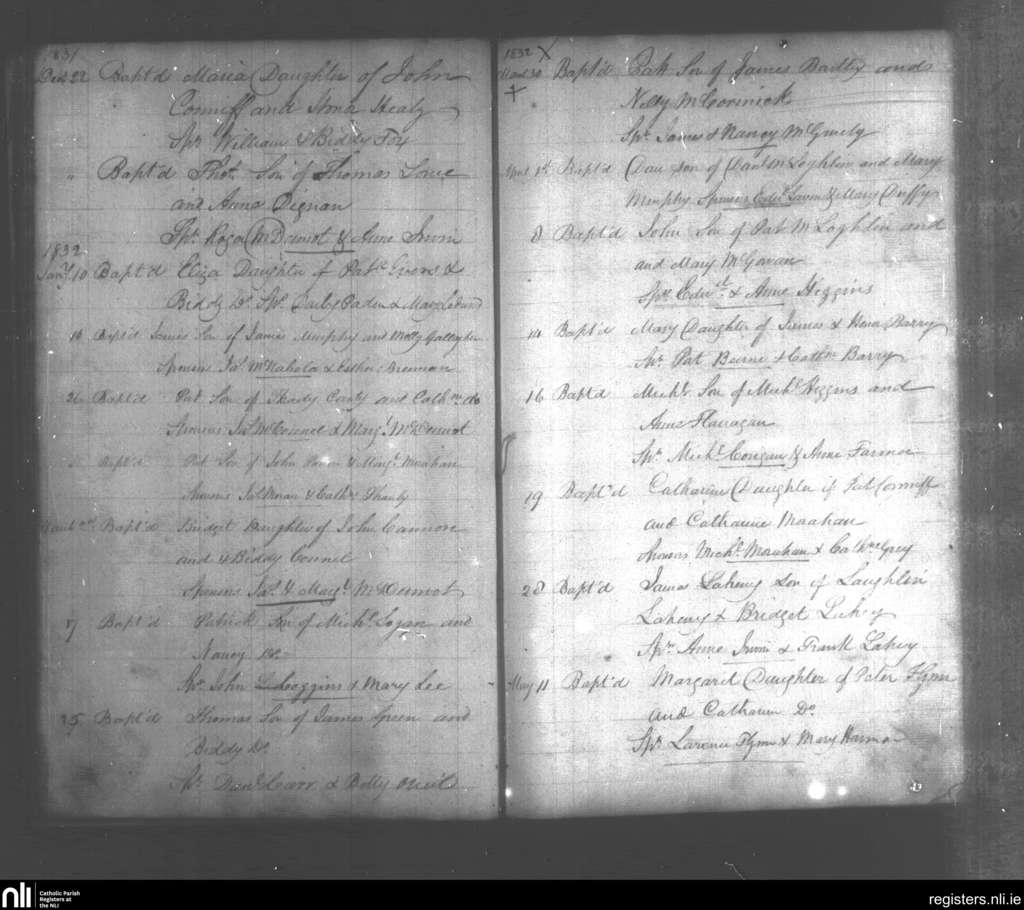 1831
Dec 22 Bapt'd Maria Daughter of John
Conniff and Hona Healy
Spr William & Biddy Foy
" Bapt'd Thos. Son of Thomas Lowe
and Anna Dignan
Spr Roger McDermot & Anne Irwin
1832
Jany 10 Bapt'd Eliza Daughter of Patk
Biddy Do. Sprs
16 Bapt'd James Son of James Murphy and Molly Gallagher
Sponsors Jas. McNahola & Esther Brennan
26 Bapt'd Pat Son of Thady Canty and Cathne do
Sponsors Jas McDermot & Margt McDermot
" Bapt'd Pat Son of John & Margt Monahan
Sponsors Jas Moran & Cathe
Bapt'd Bridget Daughter of John Cannon
and & Biddy Connel
Sponsors Jas. & Margt McDermot
17 Bapt'd Patrick Son of Michl Logan and
Nancy Do.
Spr John Coggins & Mary Lee
25 Bapt'd Thomas Son of James Green and
Biddy Do
Spr Danl Carr & Betty Oneil
1832 X
March 30 Bapt'd Patk Son of James Battly and
+ Nelly McCormick
Spr James & Nancy McGreely
April 1st Bapt'd Dan son of Danl McLoghlin and Mary
Murphy Sponsors Edwd & Mary Duffy
8 Bapt'd John Son of Pat McLoghlin and
and Mary McGavan
Sprs Edwd & Anne Higgins
14 Bapt'd Mary Daughter of James & Hona Barry
Spr Pat Beirne & Cathne Barry
16 Bapt'd Michl. Son of Michl Higgins and
Anne Flanagan
Spr Michl Corigan & Anne Farmer
19 Bapt'd Catharine Daughter of Pat Conniff
and Catharine Maahan
Sponsors Michl Monahan & Cathne Grey
28 Bapt'd James Laheny Son of Laughlin
Laheny & Bridget Lahey
Spr Anne Irwin & Frank Lahey
May 11 Bapt'd Margaret Daughter of Peter Flynn
and Catharine Do.
Sprs Larence Flynn & Mary Hannon
nli Catholic Parish
Registers at
the NLI
registers.nli.ie